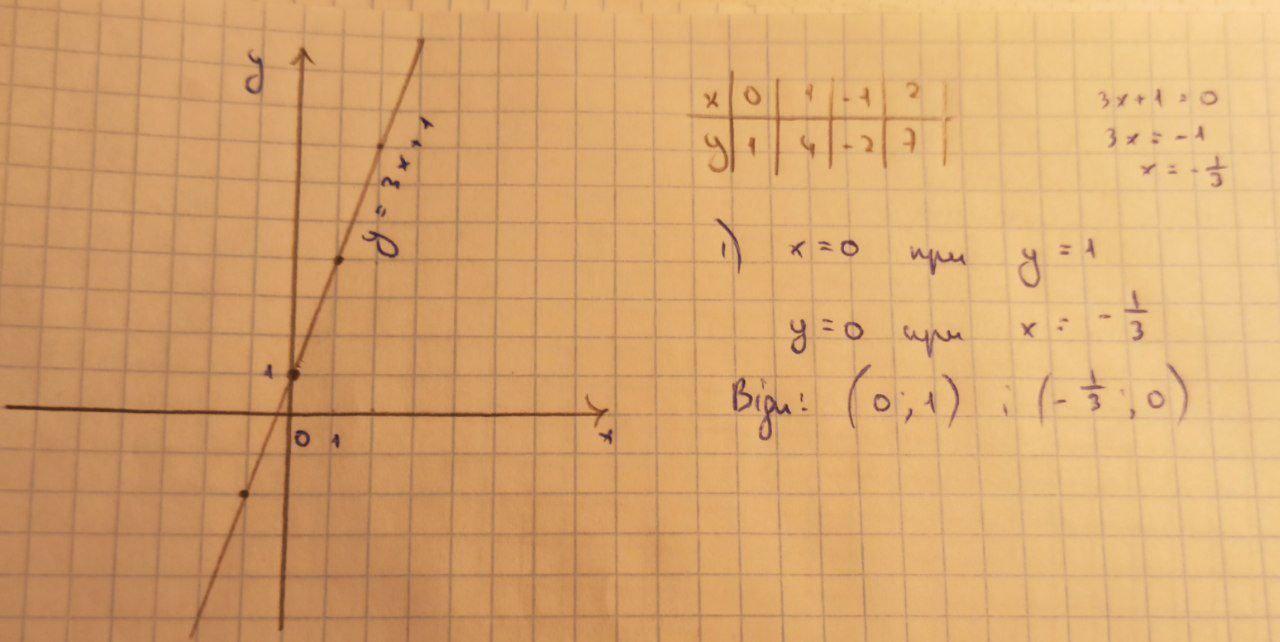 y
y = 3x+1
1
0 1
x
x 0 1 -1 2
y 1 4 -2 7
3x+1=0
3x = -1
x = -1/3
1) x=0 при y=1
y=0 при x= -1/3
Відп: (0;1) і (-1/3;0)